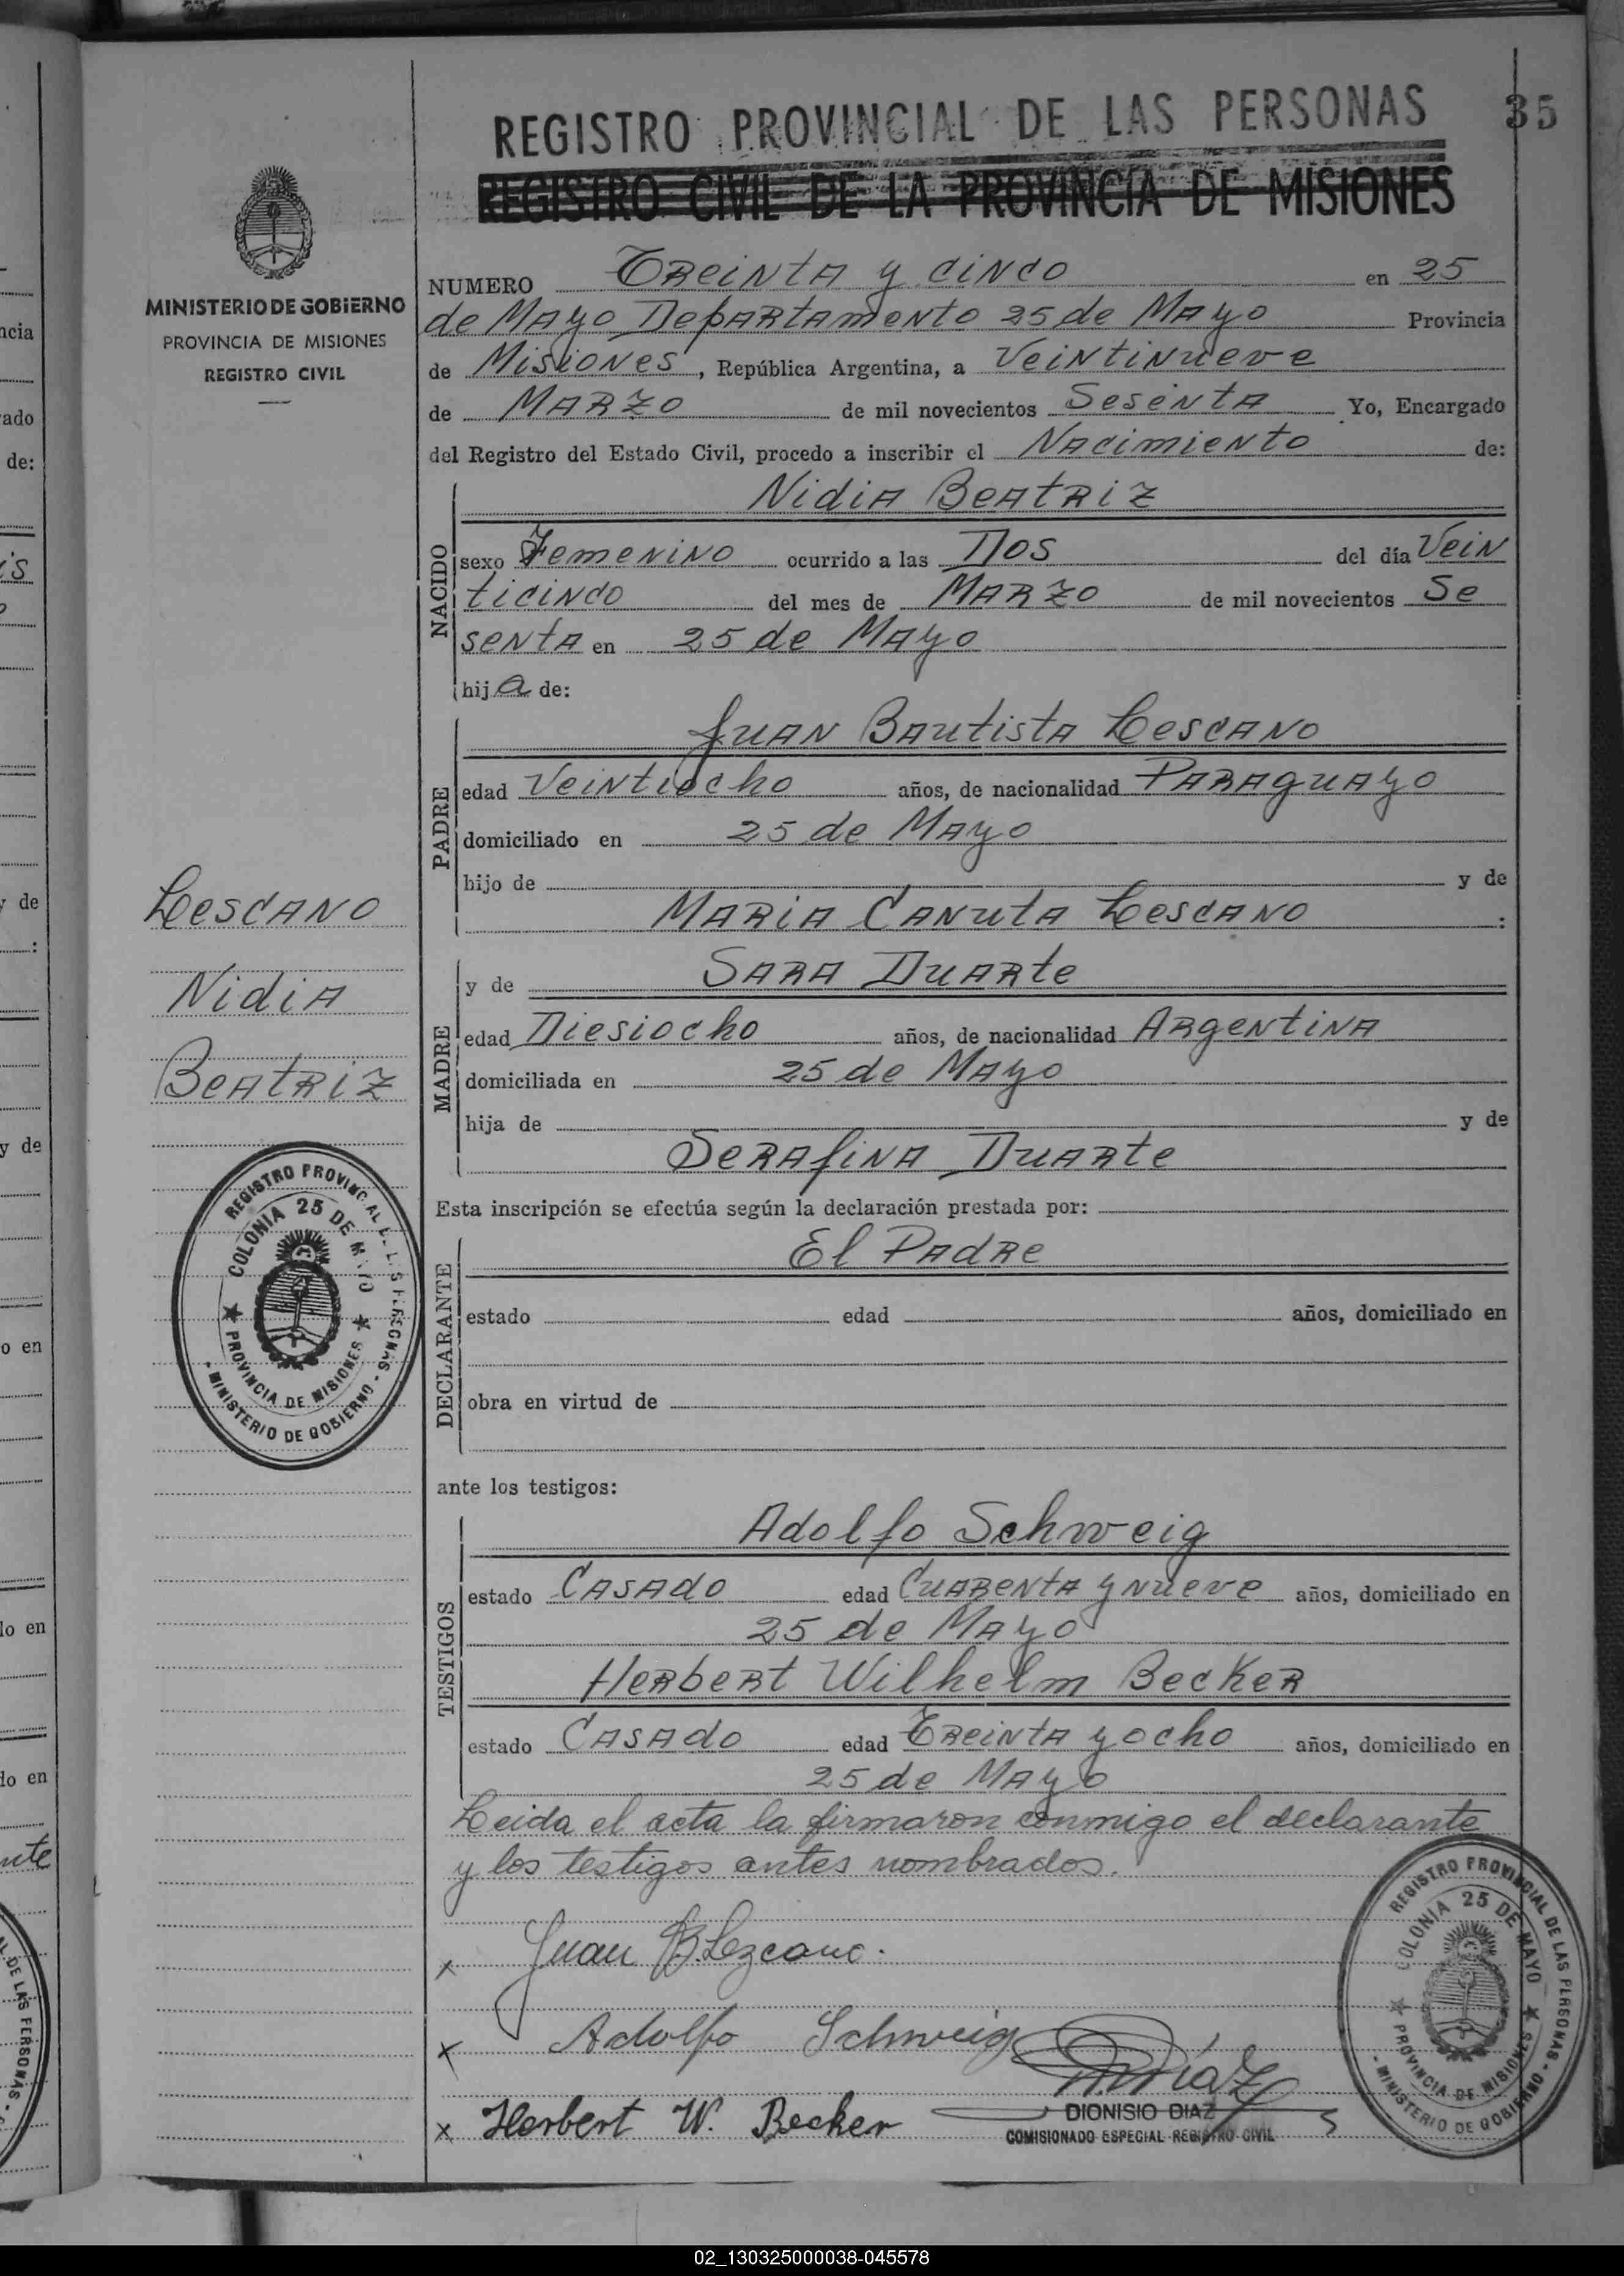 REGISTRO PROVINCIAL DE LAS PERSONAS
35
REGISTRO CIVIL DE LA PROVINCIA DE MISIONES
MINISTERIO DE GOBIERNO
PROVINCIA DE MISIONES
REGISTRO CIVIL
NUMERO Treinta y cinco en 25
de Mayo Departamento 25 de Mayo Provincia
de Misiones, República Argentina, a Veintinueve
de Marzo de mil novecientos Sesenta Yo, Encargado
del Registro del Estado Civil, procedo a inscribir el Nacimiento de:
NACIDO
Nidia Beatriz
sexo Femenino ocurrido a las Dos del día Vein
ticinco del mes de Marzo de mil novecientos Se
senta en 25 de Mayo
hija de:
PADRE
Juan Bautista Lescano
edad Veintiocho años, de nacionalidad Paraguayo
domiciliado en 25 de Mayo
hijo de y de
Maria Canuta Lescano :
MADRE
y de Sara Duarte
edad Diesiocho años, de nacionalidad Argentina
domiciliada en 25 de Mayo
hija de y de
Serafina Duarte
Lescano
Nidia
Beatriz
REGISTRO PROVINCIAL DE LAS PERSONAS
COLONIA 25 DE MAYO
PROVINCIA DE MISIONES
- MINISTERIO DE GOBIERNO -
Esta inscripción se efectúa según la declaración prestada por:
DECLARANTE
El Padre
estado edad años, domiciliado en
obra en virtud de
ante los testigos:
TESTIGOS
Adolfo Schweig
estado Casado edad Cuarenta y nueve años, domiciliado en
25 de Mayo
Herbert Wilhelm Becker
estado Casado edad Treinta y ocho años, domiciliado en
25 de Mayo
Leida el acta la firmaron conmigo el declarante
y los testigos antes nombrados.
x Juan B. Lezcano.
x Adolfo Schweig
x Herbert W. Becker
Díaz
DIONISIO DIAZ
COMISIONADO ESPECIAL REGISTRO CIVIL
REGISTRO PROVINCIAL DE LAS PERSONAS
COLONIA 25 DE MAYO
PROVINCIA DE MISIONES
- MINISTERIO DE GOBIERNO -
ncia
ado
de:
is
y de
:
y de
o en
lo en
lo en
nte
AL DE LAS PERSONAS -
02_130325000038-045578